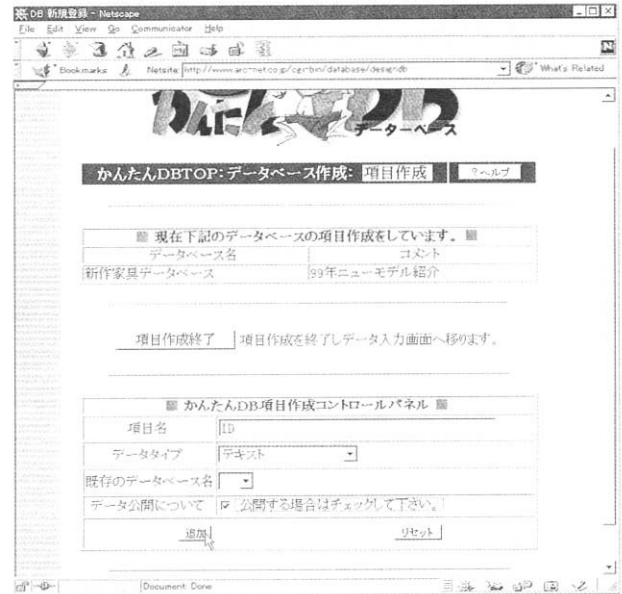 DB 新規登録 - Netscape
File Edit View Go Communicator Help
Bookmarks Netsite: http://www.arc-net.co.jp/cgi-bin/database/designdb What's Related
かんたんDB
データーベース
かんたんDBTOP:データベース作成: 項目作成 ?ヘルプ
現在下記のデータベースの項目作成をしています。
データベース名 コメント
新作家具データベース 99年ニューモデル紹介
項目作成終了 項目作成を終了しデータ入力画面へ移ります。
かんたんDB項目作成コントロールパネル
項目名 ID
データタイプ テキスト
既存のデータベース名
データ公開について 公開する場合はチェックして下さい。
追加 リセット
Document: Done